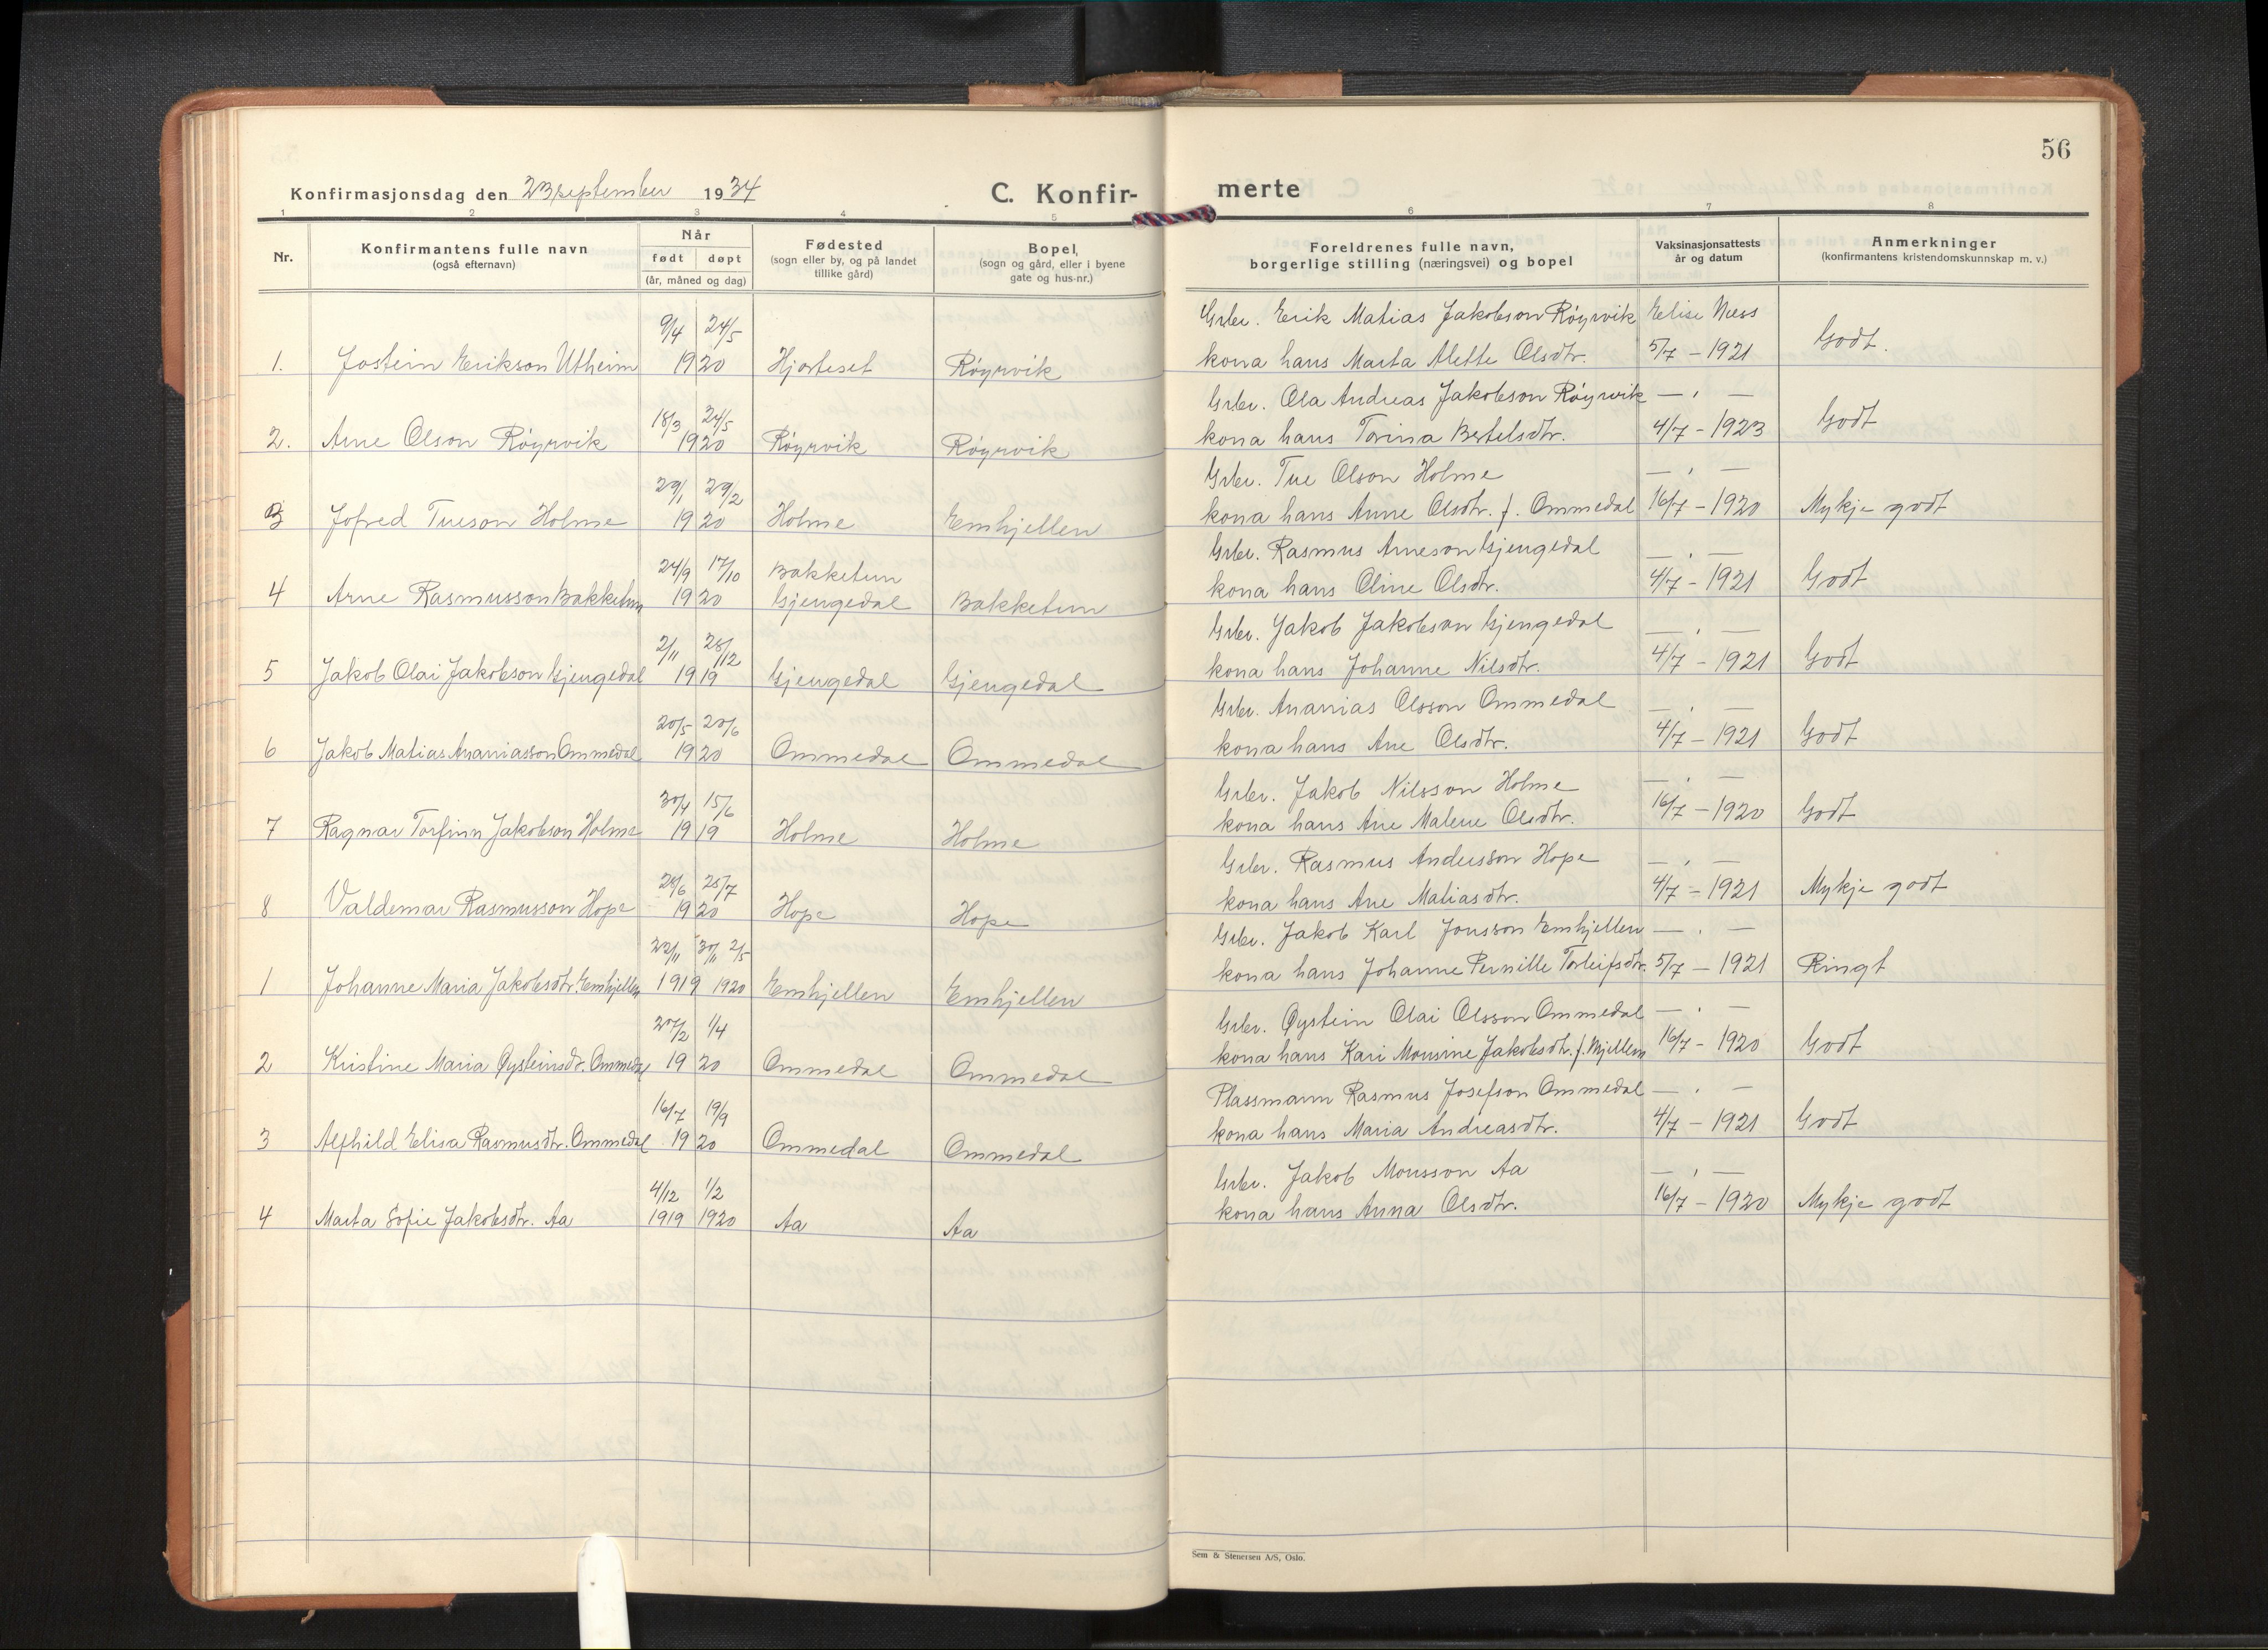 56
Konfirmasjonsdag den 23 september 1934
C. Konfir-
merte
1 2 3 4 5 6 7 8
Nr.
Konfirmantens fulle navn
(også efternavn)
Når
født døpt
(år, måned og dag)
Fødested
(sogn eller by, og på landet
tillike gård)
Bopel,
(sogn og gård, eller i byene
gate og hus-nr.)
Foreldrenes fulle navn,
borgerlige stilling (næringsvei) og bopel
Vaksinasjonsattests
år og datum
Anmerkninger
(konfirmantens kristendomskunnskap m. v.)
9/4 24/5 Grbr. Erik Matias Jakobson Röyrvik Elise Næss
1. Jostein Erikson Utheim 1920 Hjorteset Röyrvik kona hans Marta Alette Olsdtr. 5/7 - 1921 Godt.
18/3 24/5 Grbr. Ola Andreas Jakobson Röyrvik — " —
2. Arne Olson Röyrvik 1920 Röyrvik Röyrvik kona hans Torina Bertelsdtr. 4/7 - 1923 Godt
29/1 29/2 Grbr. Tue Olson Holme — " —
3 Jofred Tueson Holme 1920 Holme Emhjellen kona hans Anne Olsdtr. f. Ommedal 16/7 - 1920 Mykje godt
24/9 17/10 Bakketun Grbr. Rasmus Arneson Gjengedal — " —
4 Arne Rasmusson Bakketun 1920 Gjengedal Bakketun kona hans Oline Olsdtr. 4/7 - 1921 Godt
2/11 26/12 Grbr. Jakob Jakobson Gjengedal — " —
5 Jakob Olai Jakobson Gjengedal 1919 Gjengedal Gjengedal kona hans Johanne Nilsdtr. 4/7 - 1921 Godt
20/5 20/6 Grbr. Ananias Olsson Ommedal — " —
6 Jakob Matias Ananiasson Ommedal 1920 Ommedal Ommedal kona hans Ane Olsdtr. 4/7 - 1921 Godt
30/4 15/6 Grbr. Jakob Nilsson Holme — " —
7 Ragnar Torfinn Jakobson Holme 1919 Holme Holme kona hans Ane Malene Olsdtr. 16/7 - 1920 Godt
25/7 Grbr. Rasmus Andersson Hope — " —
8 Valdemar Rasmusson Hope 1920 Hope Hope kona hans Ane Matiasdtr. 4/7 - 1921 Mykje godt
22/11 30/11 2/5 Grbr. Jakob Karl Jonsson Emhjellen — " —
1 Johanne Maria Jakobsdtr. Emhjellen 1919 1920 Emhjellen Emhjellen kona hans Johanne Pernille Torleifsdtr. 5/7 - 1921 Ringt
20/2 1/4 Grbr. Øystein Olai Olsson Ommedal — " —
2 Kristine Maria Øysteinsdr. Ommedal 1920 Ommedal Ommedal kona hans Kari Monsine Jakobsdtr. f. Mjellem 16/7 - 1920 Godt
16/7 19/9 Plassmann Rasmus Josefson Ommedal — " —
3 Alfhild Elisa Rasmusdtr. Ommedal 1920 Ommedal Ommedal kona hans Maria Andreasdtr. 4/7 - 1921 Godt
4/12 1/2 Grbr. Jakob Monsson Aa — " —
4 Marta Sofie Jakobsdtr. Aa 1919 1920 Aa Aa kona hans Anna Olsdtr. 16/7 - 1920 Mykje godt
Sem & Stenersen A/S, Oslo.